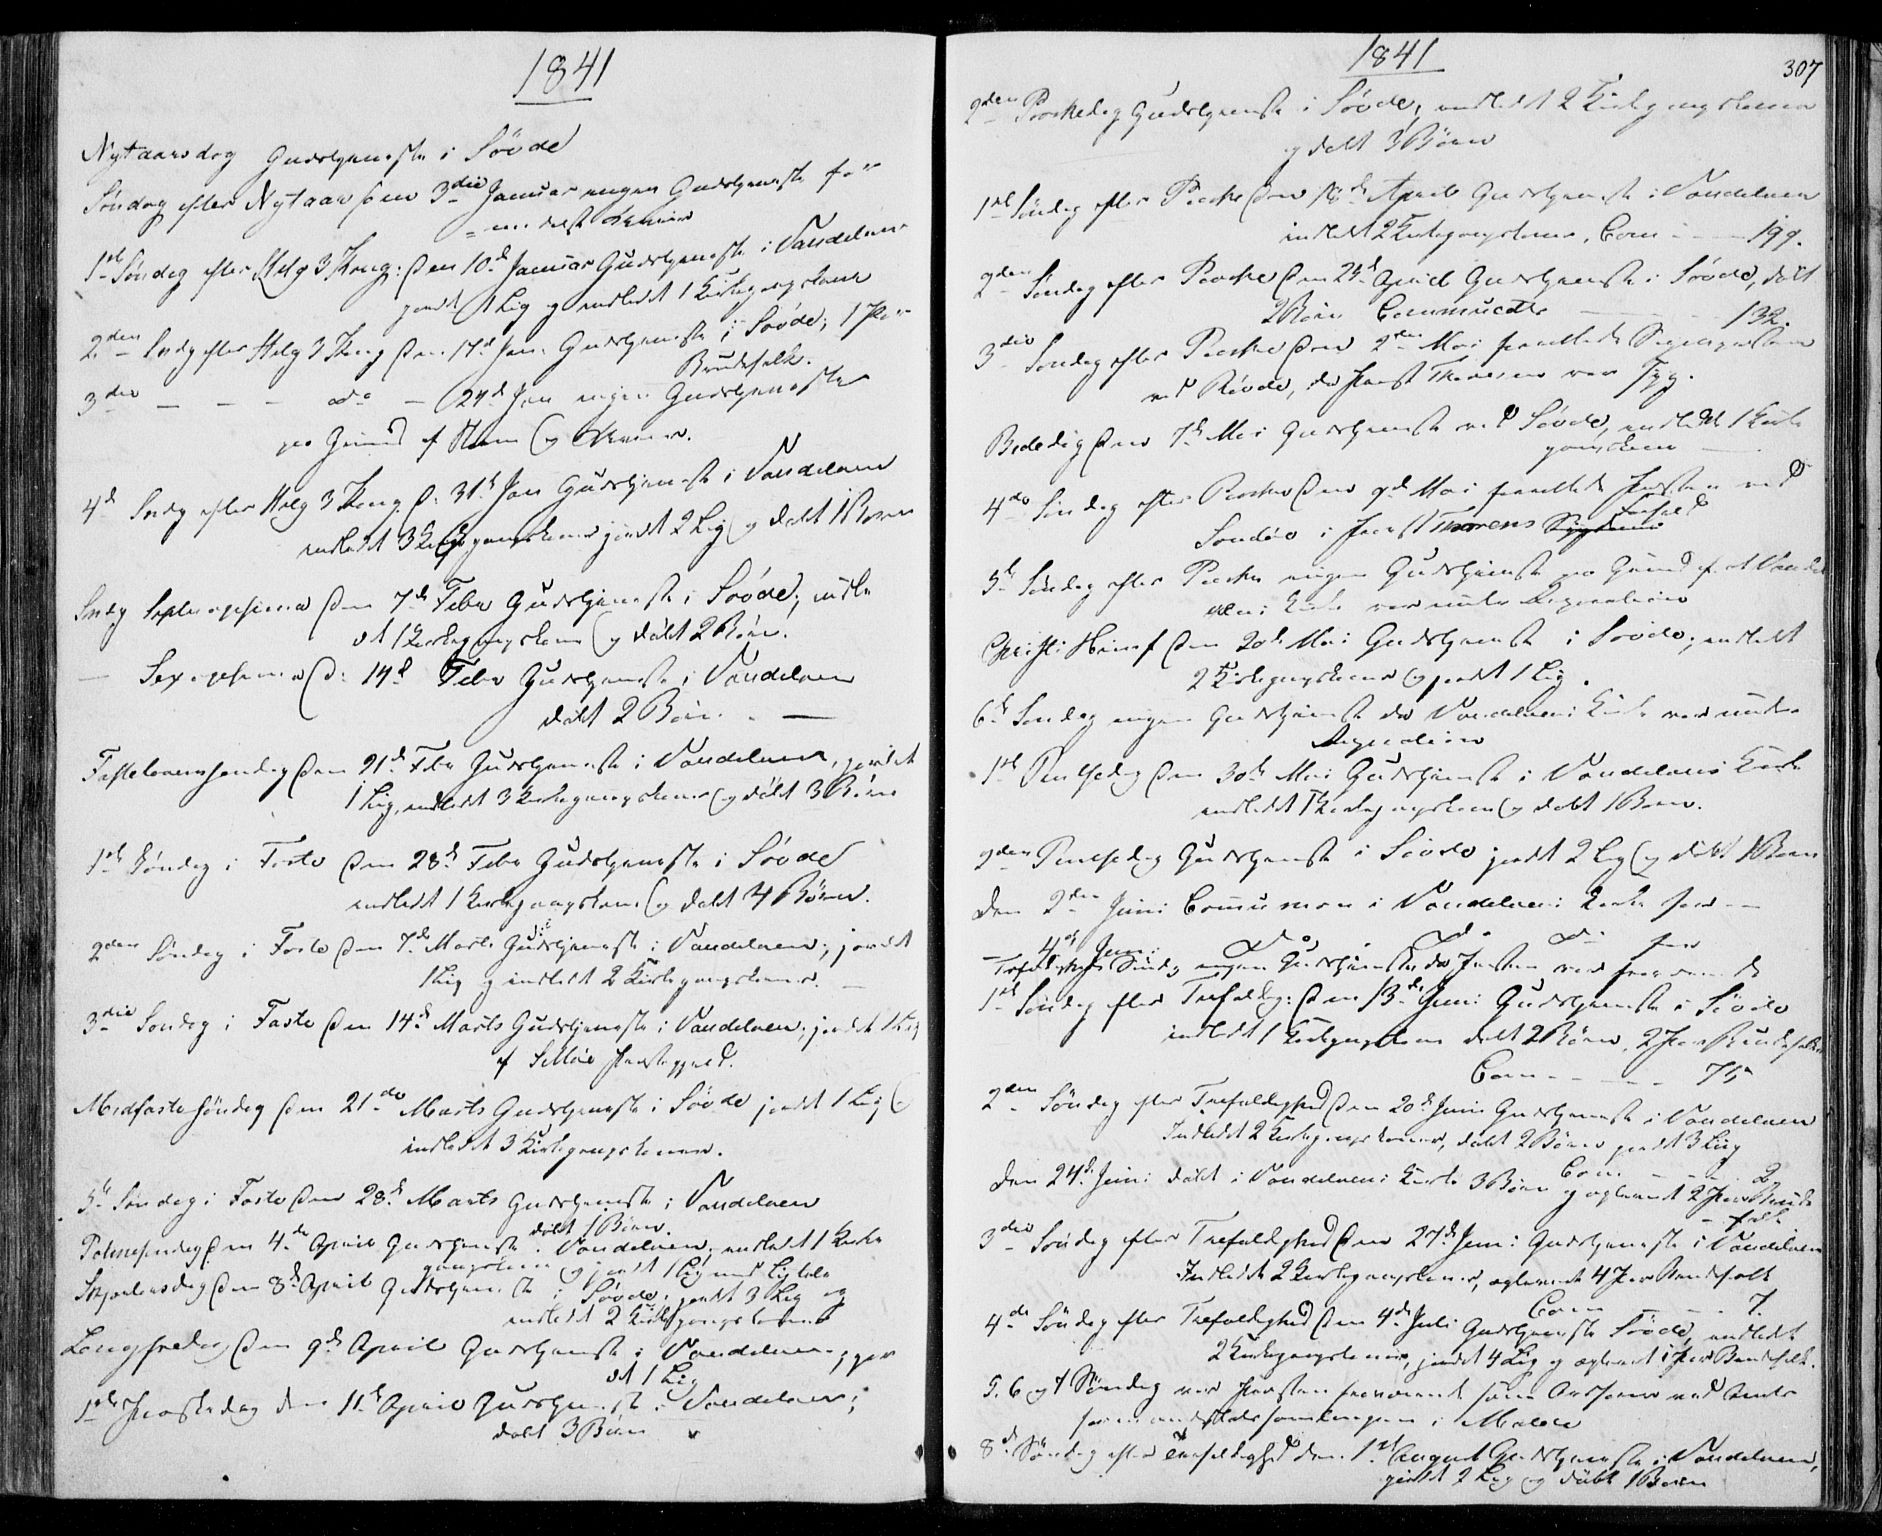 1841
Nytaarsdag Gudstjeneste i Søvde
Søndag efter Nytaar den 3die Januar ingen Gudstjeneste
1ste Søndag efter Hellig 3 Kong: den 10de Januar Gudstjeneste i Vandelven
jordet 1 Lig og indledt 1 Kirkegangskone
2den Sndg efter Hellig 3 Kong den 17de Jan. Gudstjeneste i Søvde, 1 Par
Brudefolk.
3die — — — do — 24de Jan ingen Gudstjeneste
paa Grund af Storm og
4de Sndg efter Hellig 3 Kong d: 31te Jan Gudstjeneste i Vandelven
indledt 3 Kirkegangskoner jordet 2 Lig og døbt 1 Barn
Sndg Septuagesima den 7de Febr Gudstjeneste i Søvde, indle
dt 1 Kirkegangskone og døbt 2 Børn.
— Sexagesima d: 14de Febr Gudstjeneste i Vandelven
døbt 2 Børn. —
Fastelavenssøndag den 21de Febr Gudstjeneste i Vandelven, jordet
1 Lig, indledt 3 Kirkegangskoner og døbt 3 Børn
1ste Søndag i Faste den 28de Febr Gudstjeneste i Søvde
indledt 1 Kirkegangskone og døbt 4 Børn.
2den Søndag i Faste den 7de Marts Gudstjeneste i Vandelven, jordet
1 Lig og indledt 2 Kirkegangskoner. —
3die Søndag i Faste den 14de Marts Gudstjeneste i Vandelven, jordet 1 Lig
af Præstegjeld.
Midfastesøndag den 21de Marts Gudstjeneste i Søvde jordet 1 Lig og
indledt 3 Kirkegangskoner.
5te Søndag i Faste den 28de Marts Gudstjeneste i Vandelven
døbt 1 Barn.
Palmesøndag den 4de April Gudstjeneste i Vandelven, indledt 1 Kirke
gangskone og jordet 1 Lig med Ligtale
Skjærtorsdag den 8de April Gudstjeneste i Søvde, jordet 3 Lig og
indledt 2 Kirkegangskoner
Langfredag den 9de April Gudstjeneste i Vandelven, jor
det 1 Lig
1ste Paaskedag den 11te April Gudstjeneste i Vandelven;
døbt 3 Børn
1841
307
2den Paaskedag Gudstjeneste i Søvde, indledt 2 Kirkegangskoner
og døbt 3 Børn
1ste Søndag efter Paaske den 18de April Gudstjeneste i Vandelven
indledt 2 Kirkegangskoner, Com — — 199.
2den Søndag efter Paaske den 25de April Gudstjeneste i Søvde, døbt
2 Børn Communicanter — — 132.
3die Søndag efter Paaske den 2den Mai
ved Røvde, da Provst Thoresen var syg.
Bededag den 7de Mai Gudstjeneste ved Søvde, indledt 1 Kirke
gangskone —
4de Søndag efter Paaske den 9de Mai Præsten ved
i Provst Thoresens Forfald
5te Søndag efter Paaske ingen Gudstjeneste paa Grund af at Vandel
vens Kirke var under Reparation
Christi Himf den 20de Mai Gudstjeneste i Søvde; indledt
2 Kirkegangskoner og jordet 1 Lig.
6te Søndag ingen Gudstjeneste da Vandelvens Kirke var under
Reparation
1ste Pintsedag den 30te Mai Gudstjeneste i Vandelvens Kirke
indledt 1 Kirkegangskone og døbt 1 Barn.
2den Pintsedag Gudstjeneste i Søvde jordet 2 Lig og døbt 1 Barn
Den 2den Juni Communion i Vandelvens Kirke for —
— 4de Juni do do do for
Trefoldigheds Søndag ingen Gudstjeneste da Præsten var fraværende
1ste Søndag efter Trefoldig: den 13de Juni Gudstjeneste i Søvde
indledt 1 Kirkegangskone døbt 2 Børn, 2 Par Brudefolk
Com — — — 75
2den Søndag efter Trefoldighed den 20de Juni Gudstjeneste i Vandelven
Indledt 2 Kirkegangskoner, døbt 2 Børn jordet 3 Lig
Com. — — 2
Den 24de Juni døbt i Vandelvens Kirke 3 Børn og ægteviet 2 Par Brude
- folk
3die Søndag efter Trefoldighed den 27de Juni Gudstjeneste i Vandelven
Indledt 2 Kirkegangskoner, ægteviet 4 Par Brudefolk
Com — — 7.
4de Søndag efter Trefoldighed den 4de Juli Gudstjeneste Søvde, indledt
2 Kirkegangskoner, jordet 4 Lig og ægteviet 1 Par Brudefolk.
5. 6 og 7 Søndag var Præsten fraværende som ved Amts
formandskabsforsamlingen i Molde
8de Søndag efter Trefoldighed den 1ste August Gudstjeneste i Vandelven,
jordet 2 Lig og døbt 1 Barn